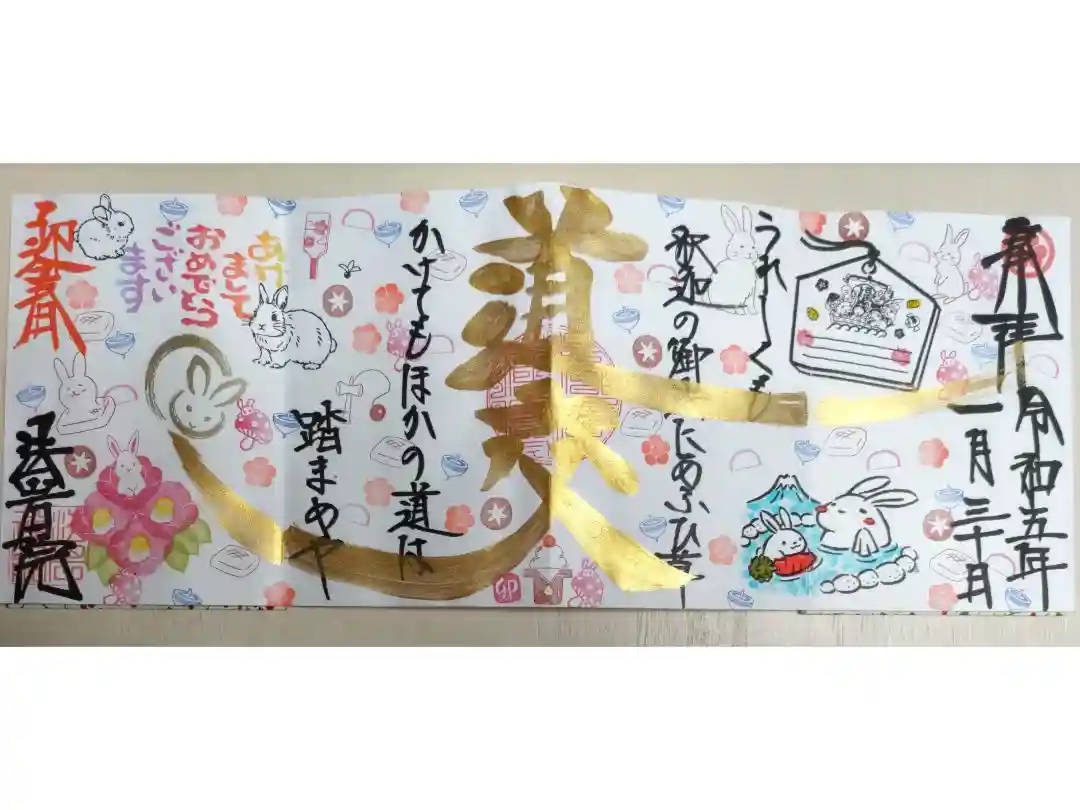 奉拝
令和五年
一月三十日
うれしくも
釈迦の御
にあふひ草
かけてもほかの道は
踏まめや
あけ
まして
おめでとう
ござい
ます
迎春
卯